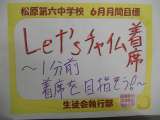 松原第六中学校 6月月間目標
Let'sチャイム着席
〜1分前
着席を目指そう!〜
生徒会執行部